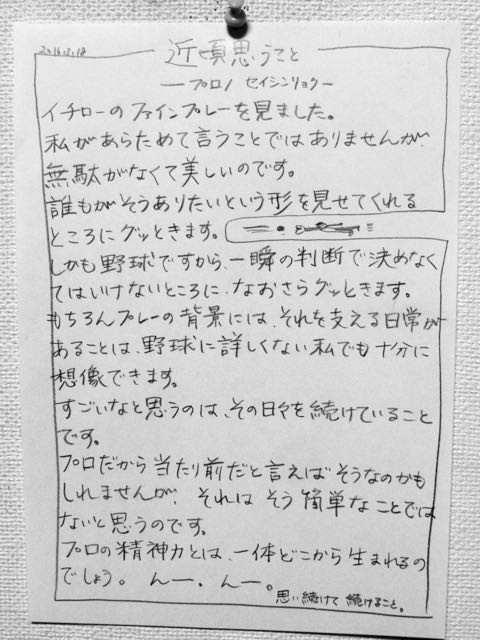 2016.3.18
近頃思うこと
—プロノ セイシンリョク—
イチローのファインプレーを見ました。
私があらためて言うことではありませんが、
無駄がなくて美しいのです。
誰もがそうありたいという形を見せてくれる
ところにグッときます。
しかも野球ですから、一瞬の判断で決めなく
てはいけないところに、なおさらグッときます。
もちろんプレーの背景には、それを支える日常が
あることは、野球に詳しくない私でも十分に
想像できます。
すごいなと思うのは、その日々を続けていること
です。
プロだから当たり前だと言えばそうなのかも
しれませんが、それはそう簡単なことでは
ないと思うのです。
プロの精神力とは、一体どこから生まれるの
でしょう。んー、んー。
思い続けて続けること。